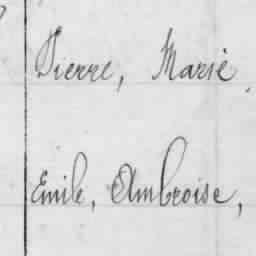 Pierre, Marie,
Emile, Ambroise,